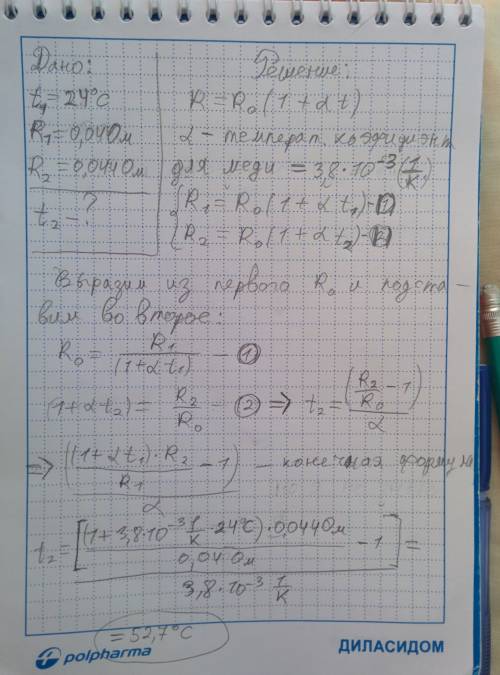 Дано:
t₁=24°C
R₁=0,04Ом
R₂=0,044Ом
t₂-?
Решение:
R=R₀(1+αt)
α - температ. коэффициент
для меди = 3,8·10⁻³(1/K)
{R₁=R₀(1+αt₁)-①
{R₂=R₀(1+αt₂)-②
Выразим из первого R₀ и подста-
вим во второе:
R₀ = R₁/(1+αt₁) - ①
(1+αt₂) = R₂/R₀ - ② => t₂ = (R₂/R₀ - 1)/α
=> ((1+αt₁)·R₂/R₁ - 1)/α - конечная формула
t₂ = [(1+3,8·10⁻³ 1/K · 24°C)·0,044Ом/0,04Ом - 1]/3,8·10⁻³ 1/K =
=52,7°C
polpharma
ДИЛАСИДОМ